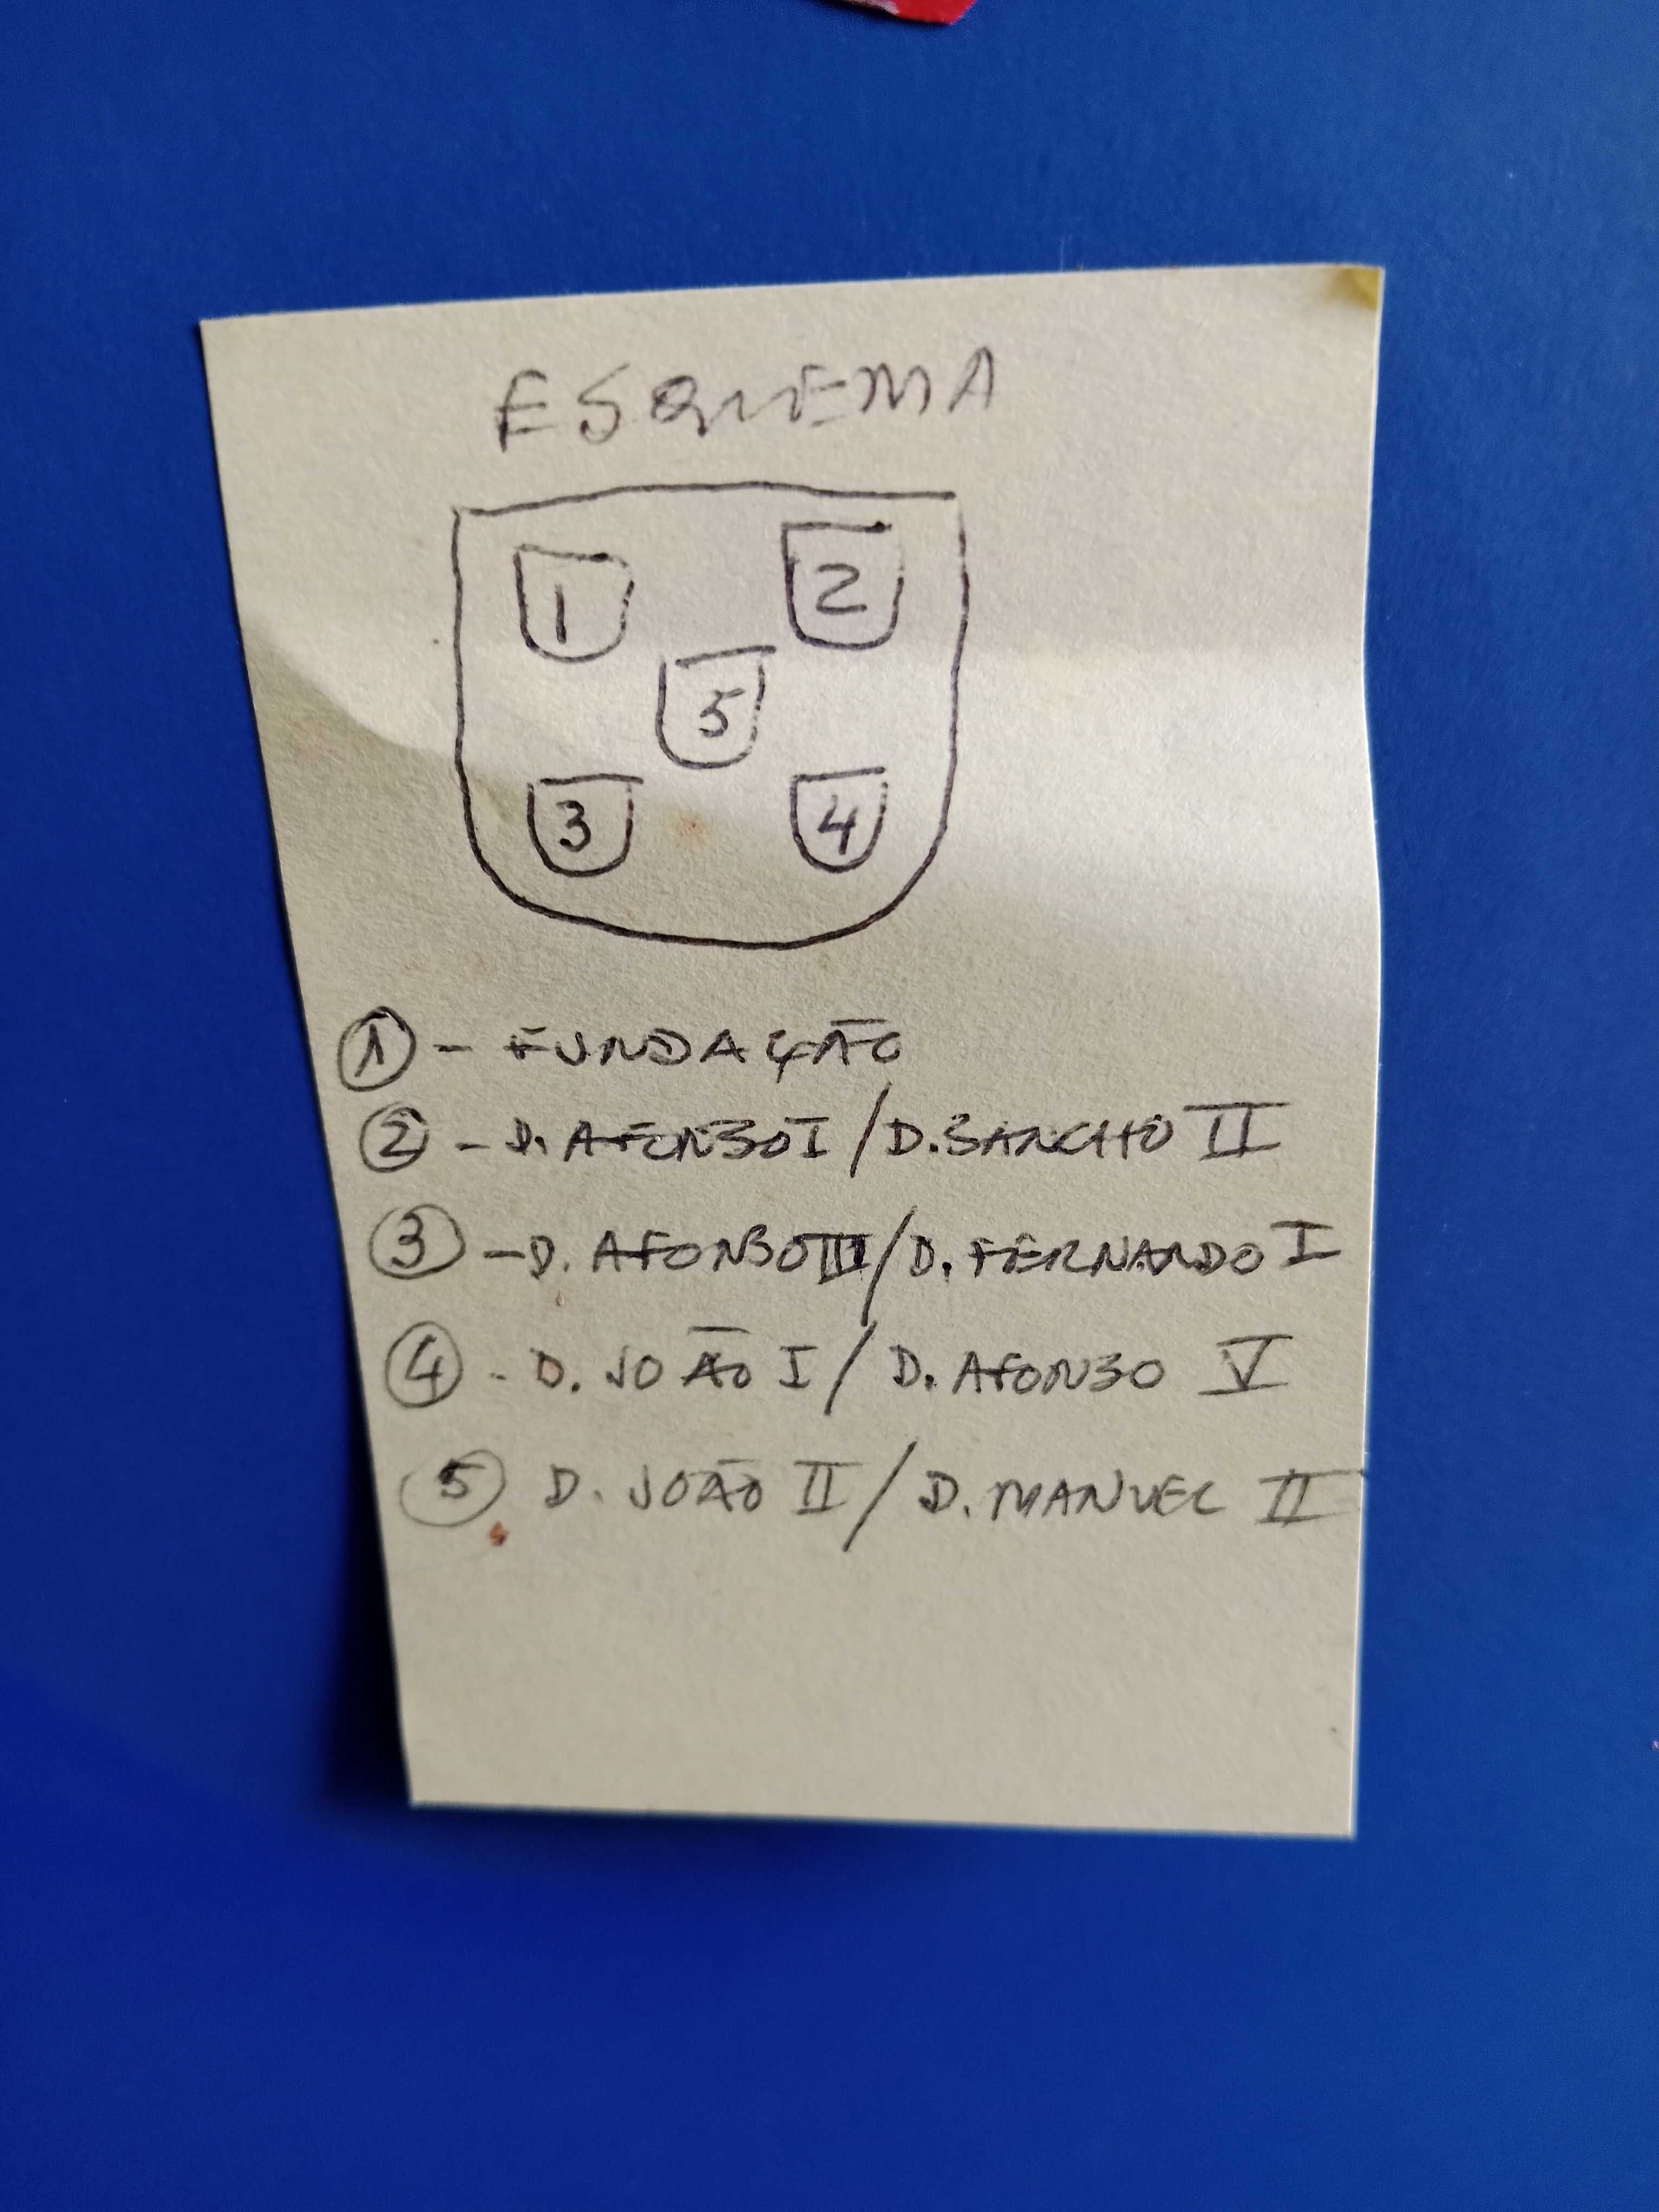 ESQUEMA
1 2
5
3 4
1 - FUNDAÇÃO
2 - D. AFONSO I / D. SANCHO II
3 - D. AFONSO III / D. FERNANDO I
4 - D. JOÃO I / D. AFONSO V
5 D. JOÃO II / D. MANUEL II